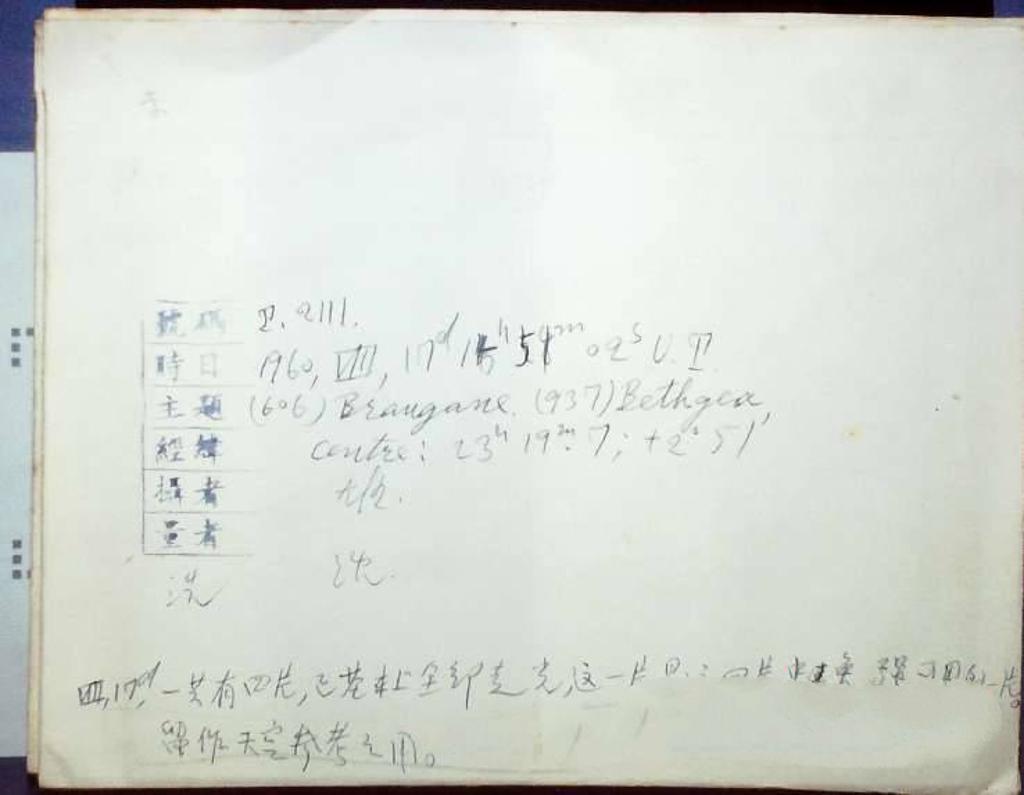 號碼 P. 2111.
時日 1960, VIII, 17ᵈ 15ʰ 59ᵐ 02ˢ U.T.
主題 (606) Brangane. (937) Bethgea,
經緯 centre: 23ʰ 19ᵐ.7; +2° 51′
攝者
量者
洗 沈.
VIII, 17ᵈ, 一共有四片, 已基本上全部走光, 这一片 四片中 用的一片。
留作天空参考之用。